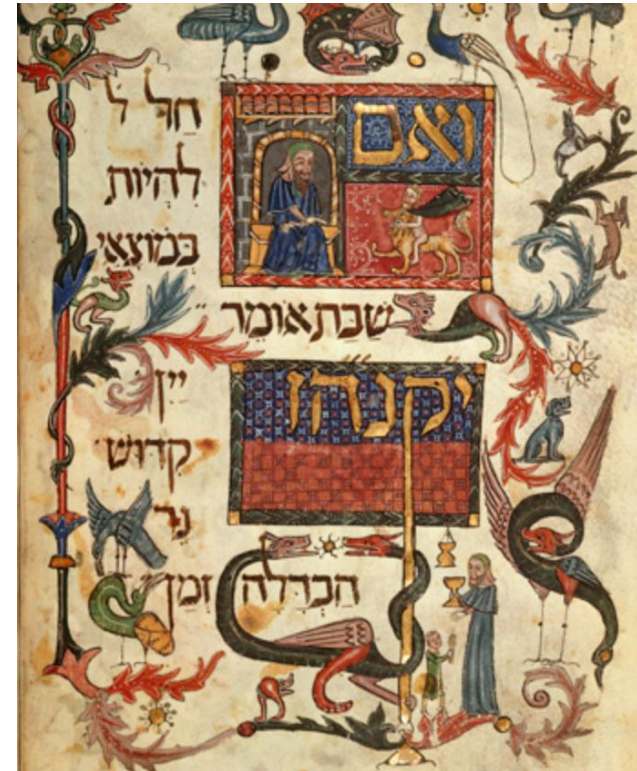 ואם
חַל ל
לִהְיוֹת
בְּמוֹצָאֵי
שַׁבָּת אוֹמֵר
יקנהז
יַיִן
קִדּוּשׁ
נֵר
הַבְדָּלָה זְמַן